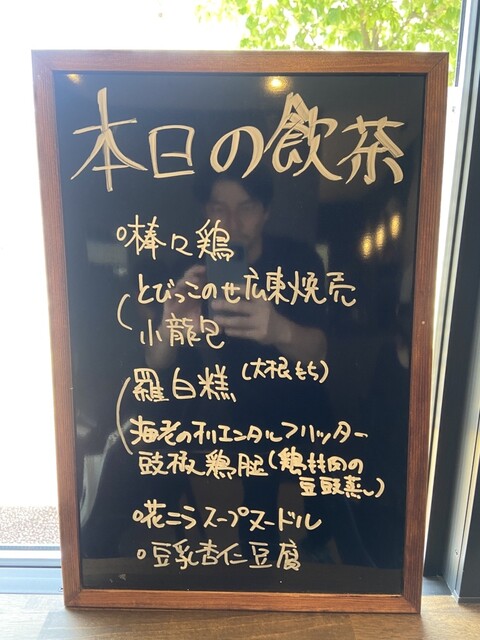 本日の飲茶
○棒々鶏
とびっこのせ広東焼売
小龍包
羅白糕(大根もち)
海老のオリエンタルフリッター
豉椒鶏脡(鶏もも肉の
豆豉蒸し)
○花ニラスープヌードル
○豆乳杏仁豆腐